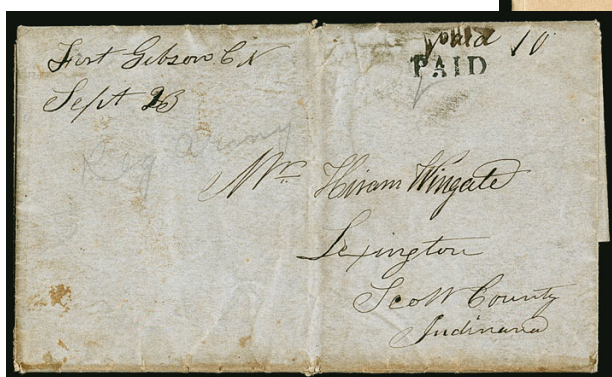 Fort Gibson C N
Sept 23
paid 10
PAID
Reg Army
Mr Hiram Wingate
Lexington
Scott County
Indinana